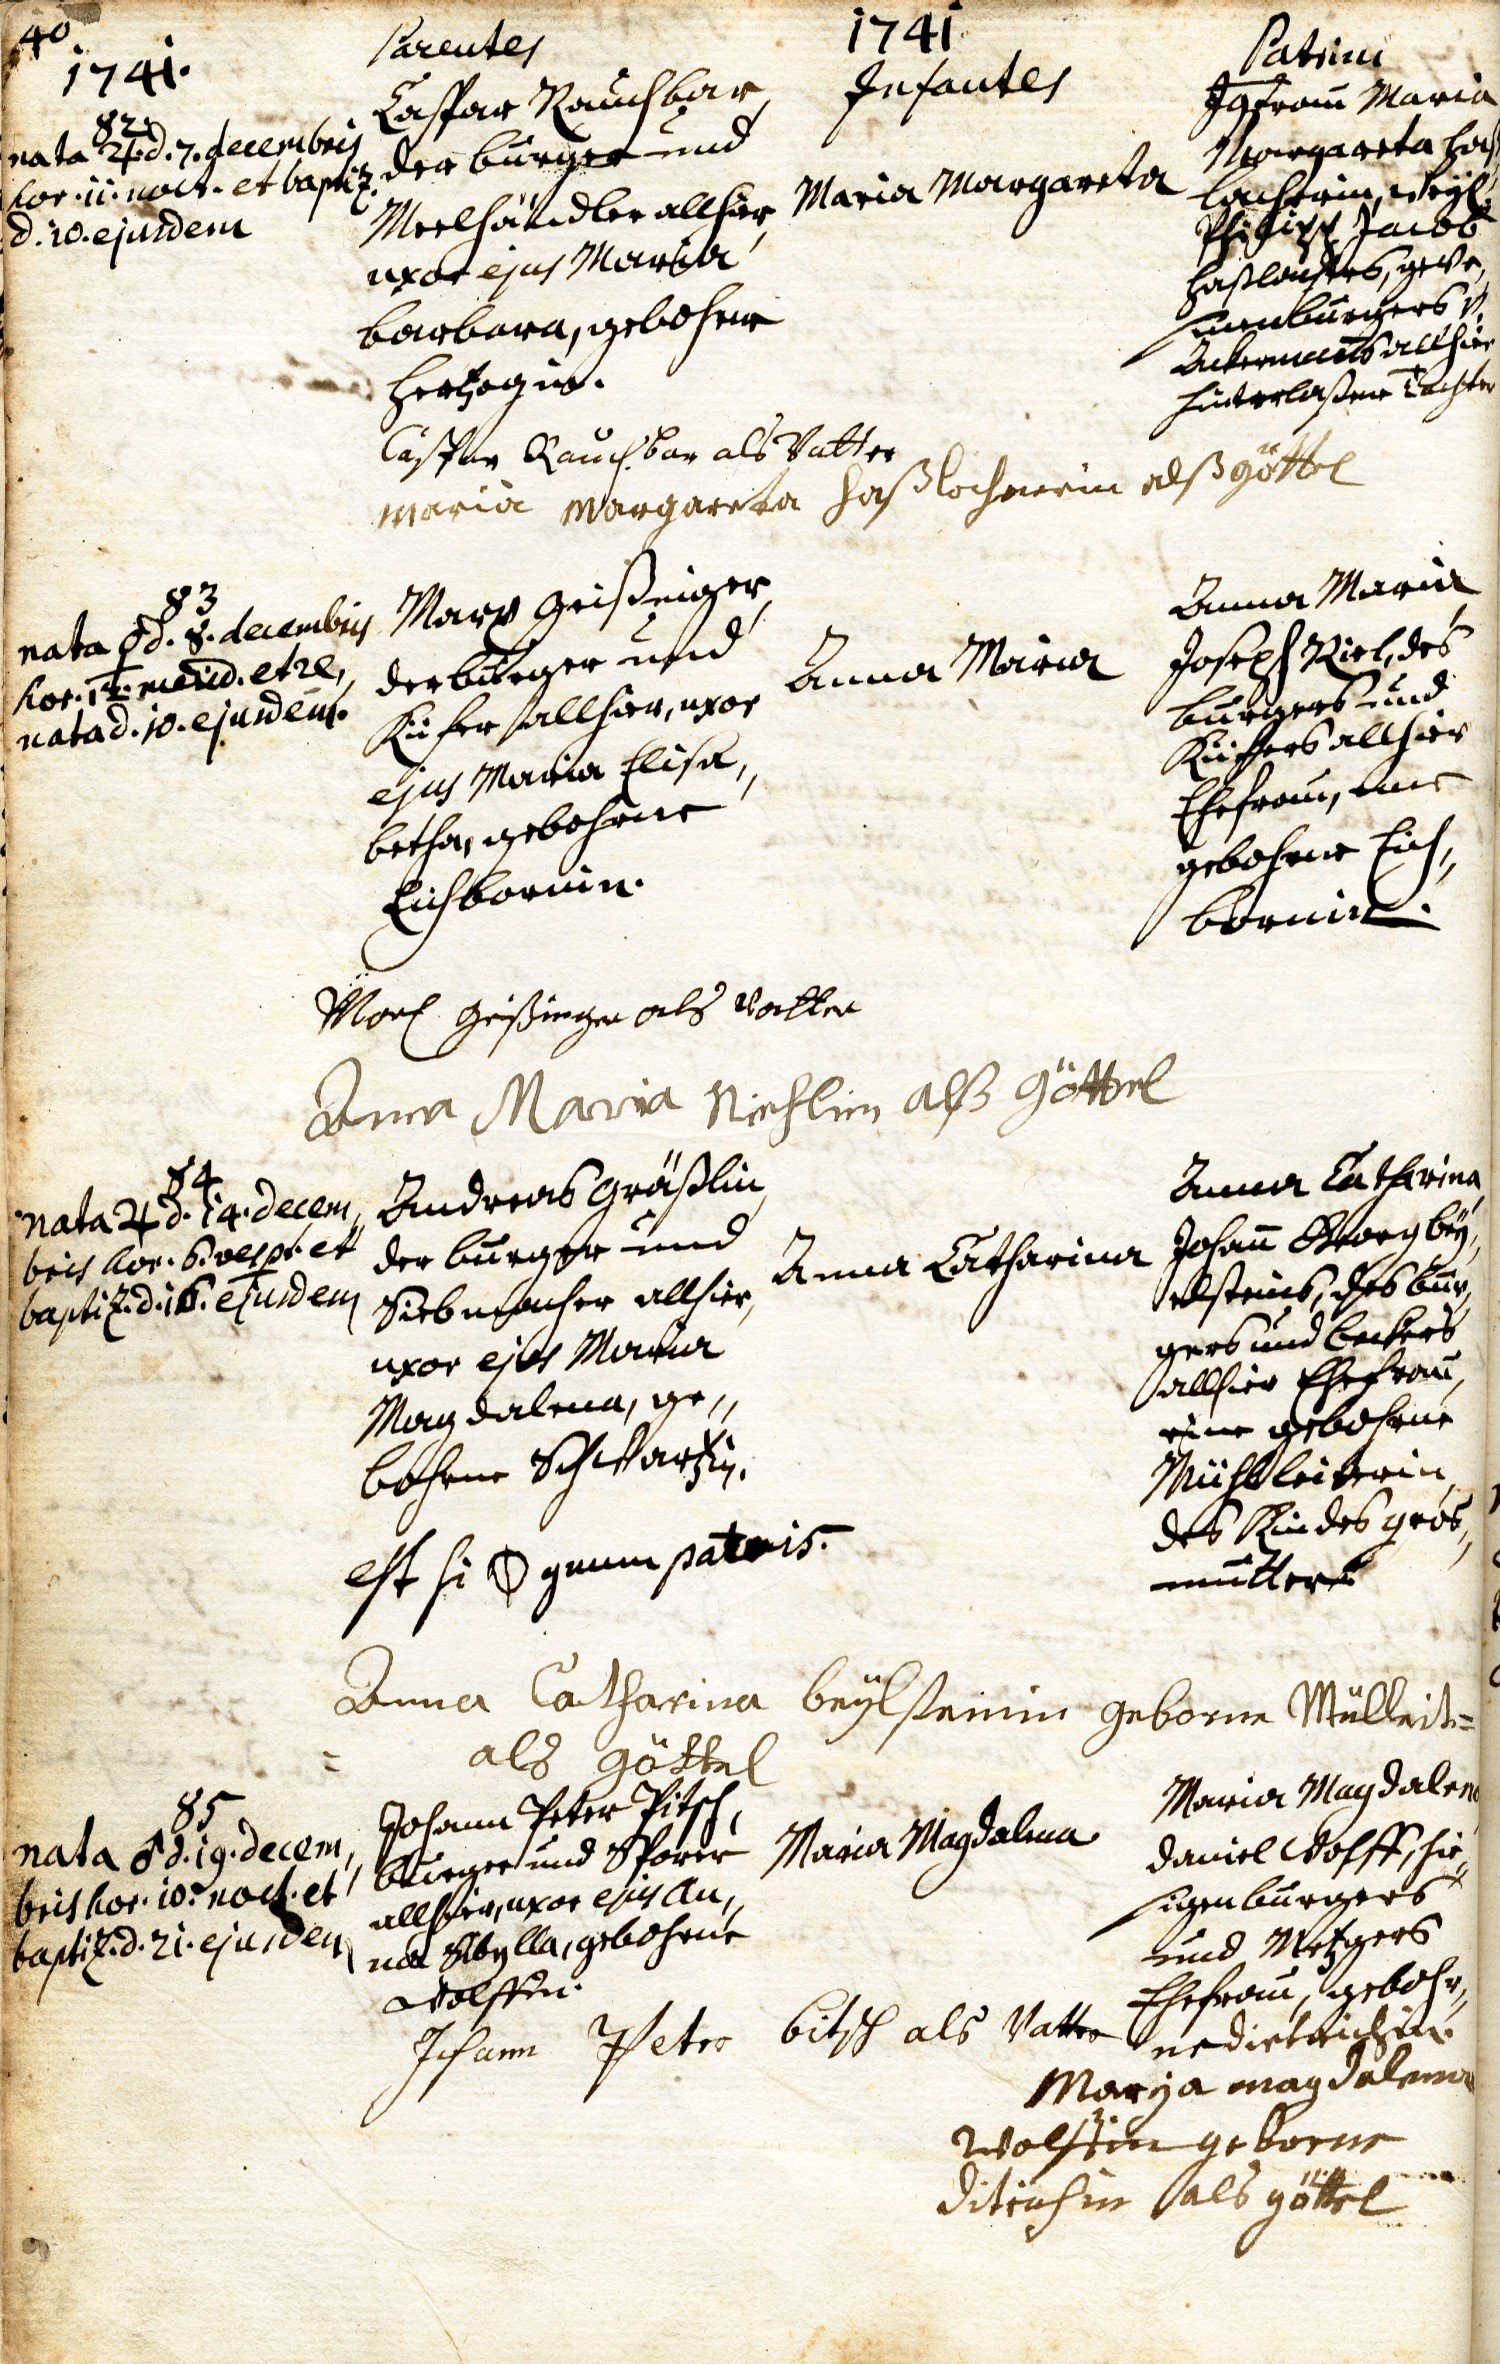 40
1741.
Parentes
1741
Infantes
Patrini
82.
nata ♃. d. 7. decembris
hor. 11. noct. et baptiz.
d. 10. ejusdem
Caspar Rauchbar,
der burger und
Meelhändler allhier,
uxor ejus Maria
barbara, gebohrne
Hertzogin.
Maria Margareta
Jgfrau Maria
Margareta Haß
lochnerin, weyl.
Philipp Jacob
Haßlochers, gewe,
burgers v.
Ackermans allhier
hinterlaßene Tochter
Caspar Rauchbar als Vatter
Maria Margareta Haßlochnerin alß göttel
83
nata d. 8. decembris
hor. 12. merid. et re,
nata d. 10. ejusdem.
Marx Geißinger,
der burger und
Küfer allhier, uxor
ejus Maria Elisa,,
betha, gebohrne
Eichbornin.
Anna Maria
Anna Maria
Joseph Kiel, des
burgers und
Küffers allhier
Ehefrau, eine
gebohrne Eich,,
bornin.
Marx Geißinger als Vatter
Anna Maria alß Göttel
84
nata ♃ d. 14. decem,
bris hor. 6. vesp. et
baptiz. d. 16. ejusdem
Andreas Gräßlin,
der burger und
Siebmacher allhier,
uxor ejus Maria
Magdalena, ge,,
bohrne Schwartzin.
Anna Catharina
Anna Catharina
Johann Georg bey,
elsteins, des bur,
gers und beckers
allhier Ehefrau,
eine gebohrne
Mühlleiterin,
des Kindes gros,,
mutter
est hi
Anna Catharina beylsteinin geborne Mülleit=
= als göttel
85
nata d. 19. decem,
bris hor. 10. noct. et
baptiz. d. 21. ejusdem
Johann Peter Pitsch,
burger und Sporer
allhier, uxor ejus An,
na Sibylla, gebohrne
Wolffin.
Maria Magdalena
Maria Magdalena
Daniel Wolffs, hie,
sigen burgers
und Metzgers
Ehefrau, gebohr,,
ne dietrichin.
Johann Peter bitsch als Vatter
Marya magdalena
Wolffin geborne
ditrichin als göttel